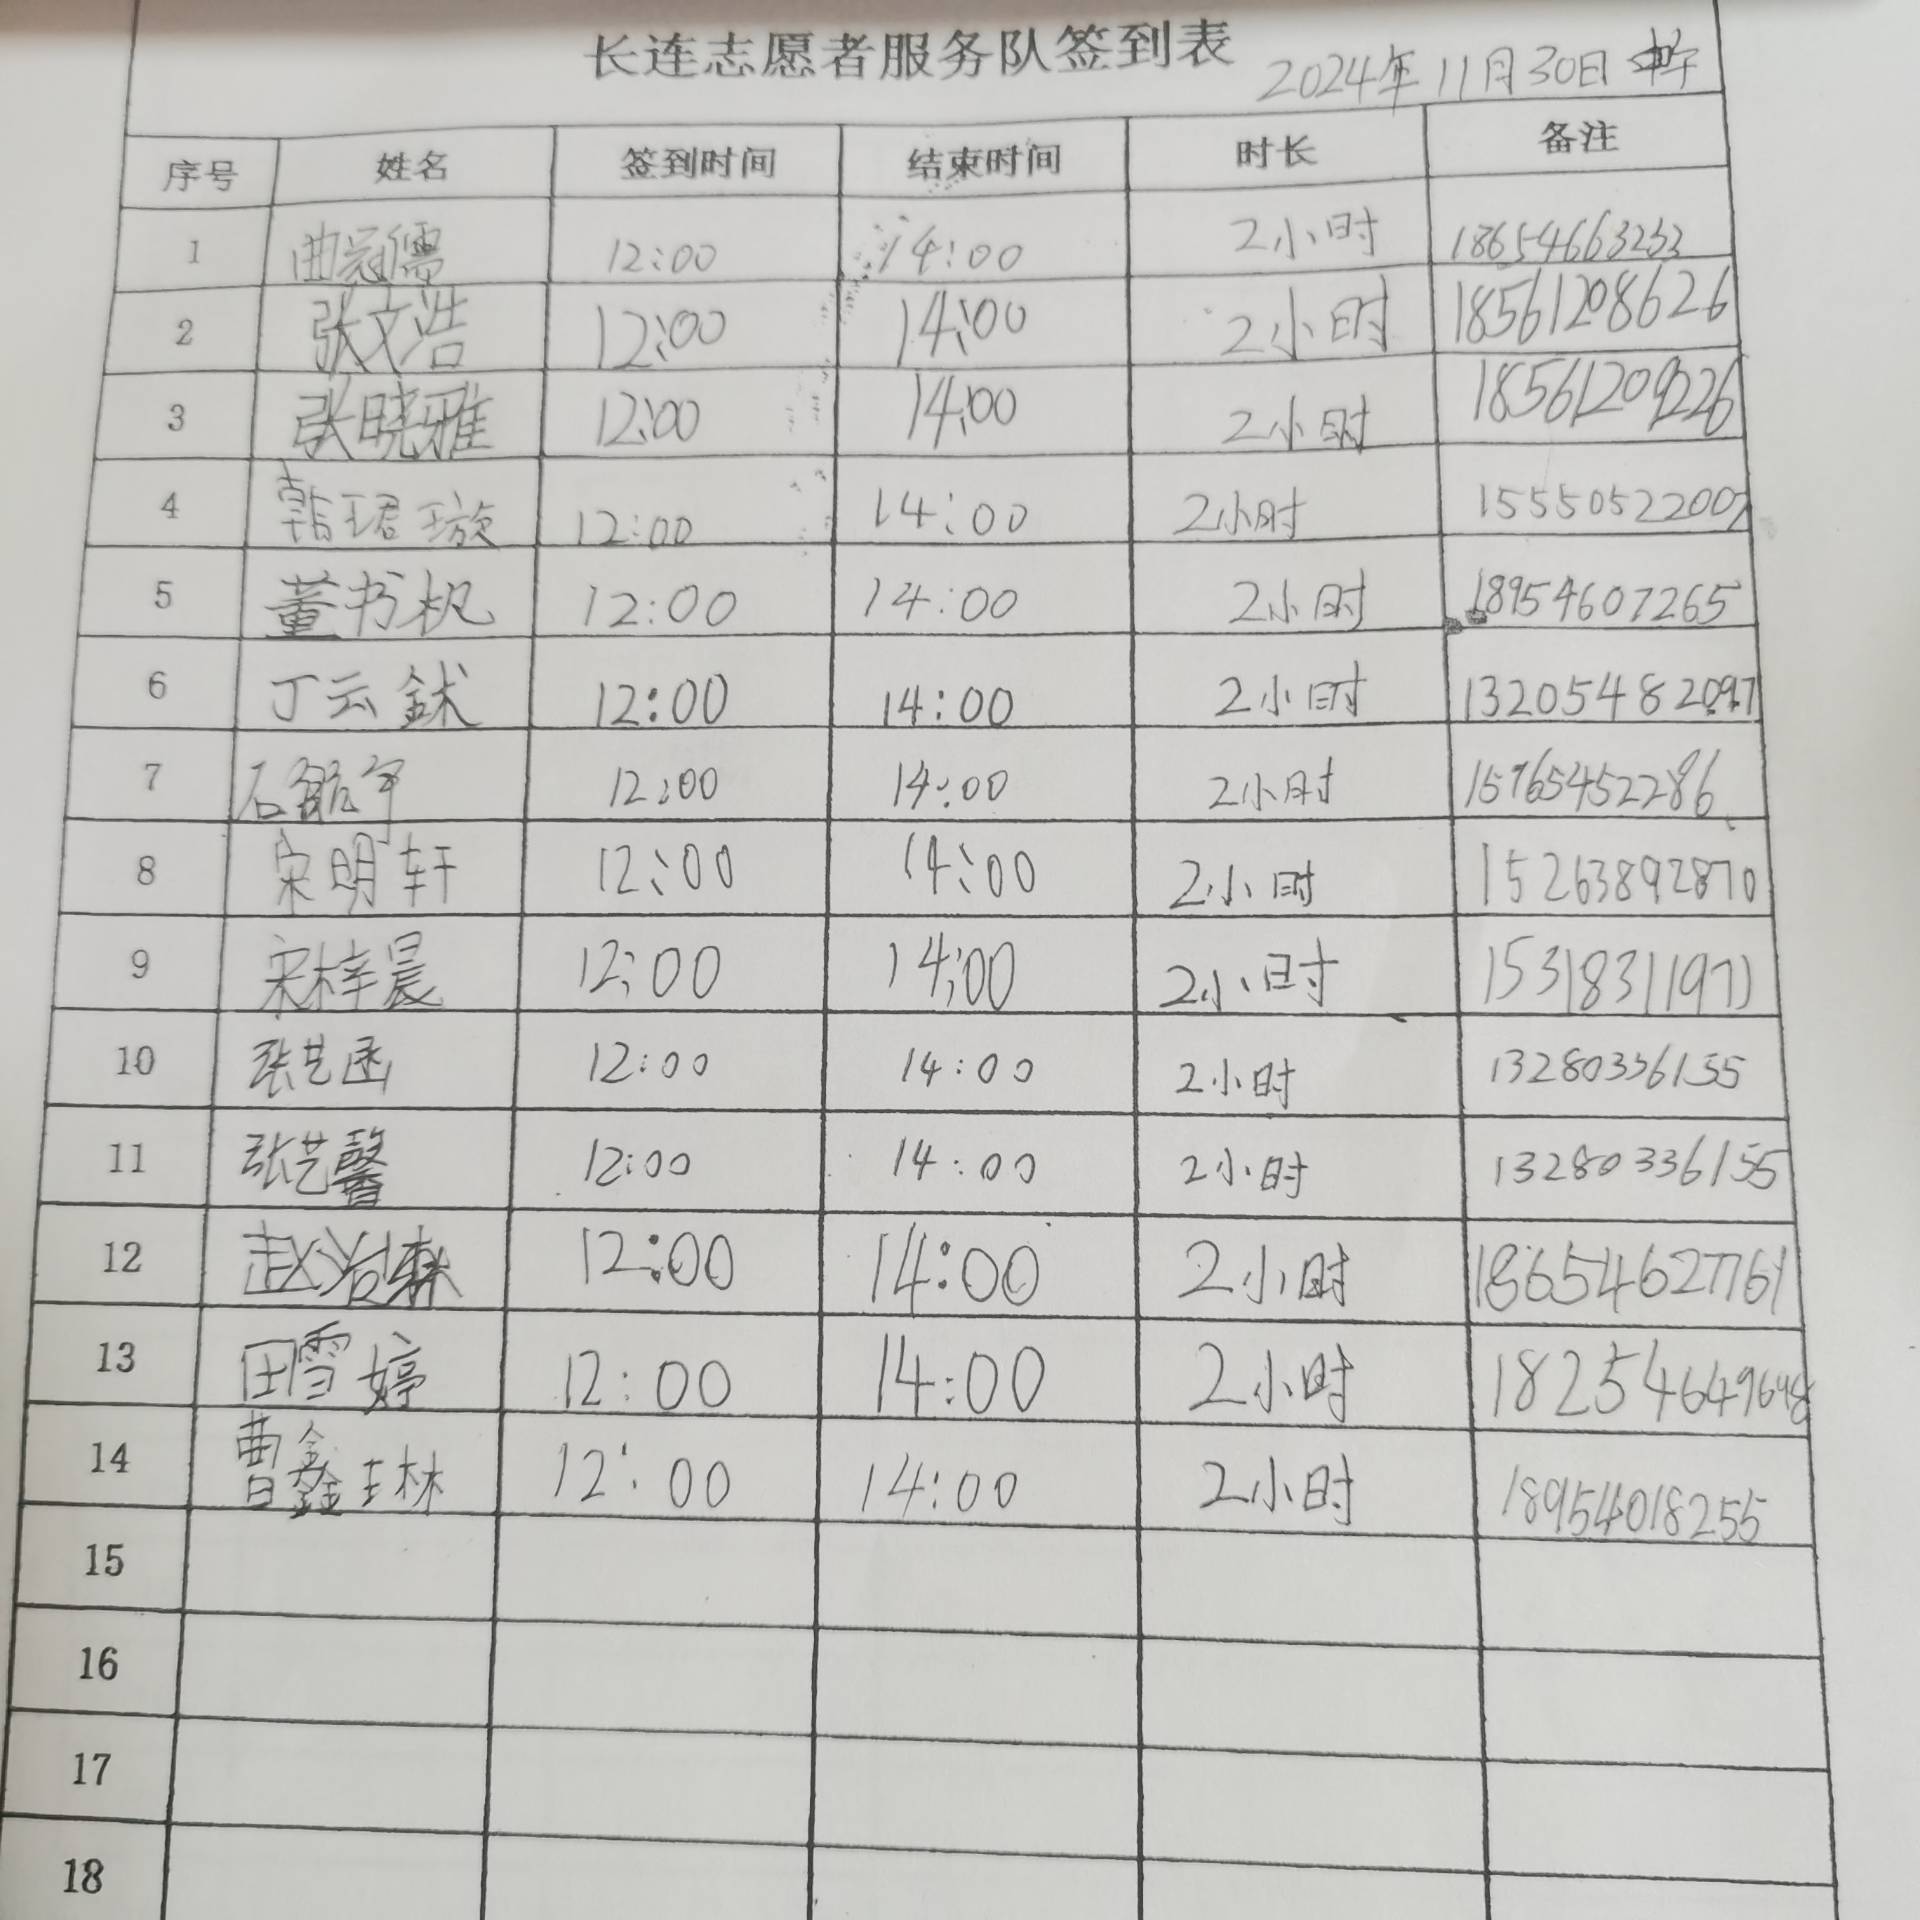 长连志愿者服务队签到表
2024年11月30日
序号 姓名 签到时间 结束时间 时长 备注
1 曲冠儒 12:00 14:00 2小时 18654663233
2 张文浩 12:00 14:00 2小时 18561208626
3 张晓雅 12:00 14:00 2小时 18561209226
4 韩珺璇 12:00 14:00 2小时 15550522007
5 董书机 12:00 14:00 2小时 18954607265
6 丁云鉽 12:00 14:00 2小时 13205482097
7 石毓宇 12:00 14:00 2小时 15765452286
8 宋明轩 12:00 14:00 2小时 15263892870
9 宋梓晨 12:00 14:00 2小时 15318311971
10 张艺函 12:00 14:00 2小时 13280336155
11 张艺馨 12:00 14:00 2小时 13280336155
12 赵治霖 12:00 14:00 2小时 18654627761
13 田雪婷 12:00 14:00 2小时 18254649698
14 曹鑫琳 12:00 14:00 2小时 18954018255
15
16
17
18